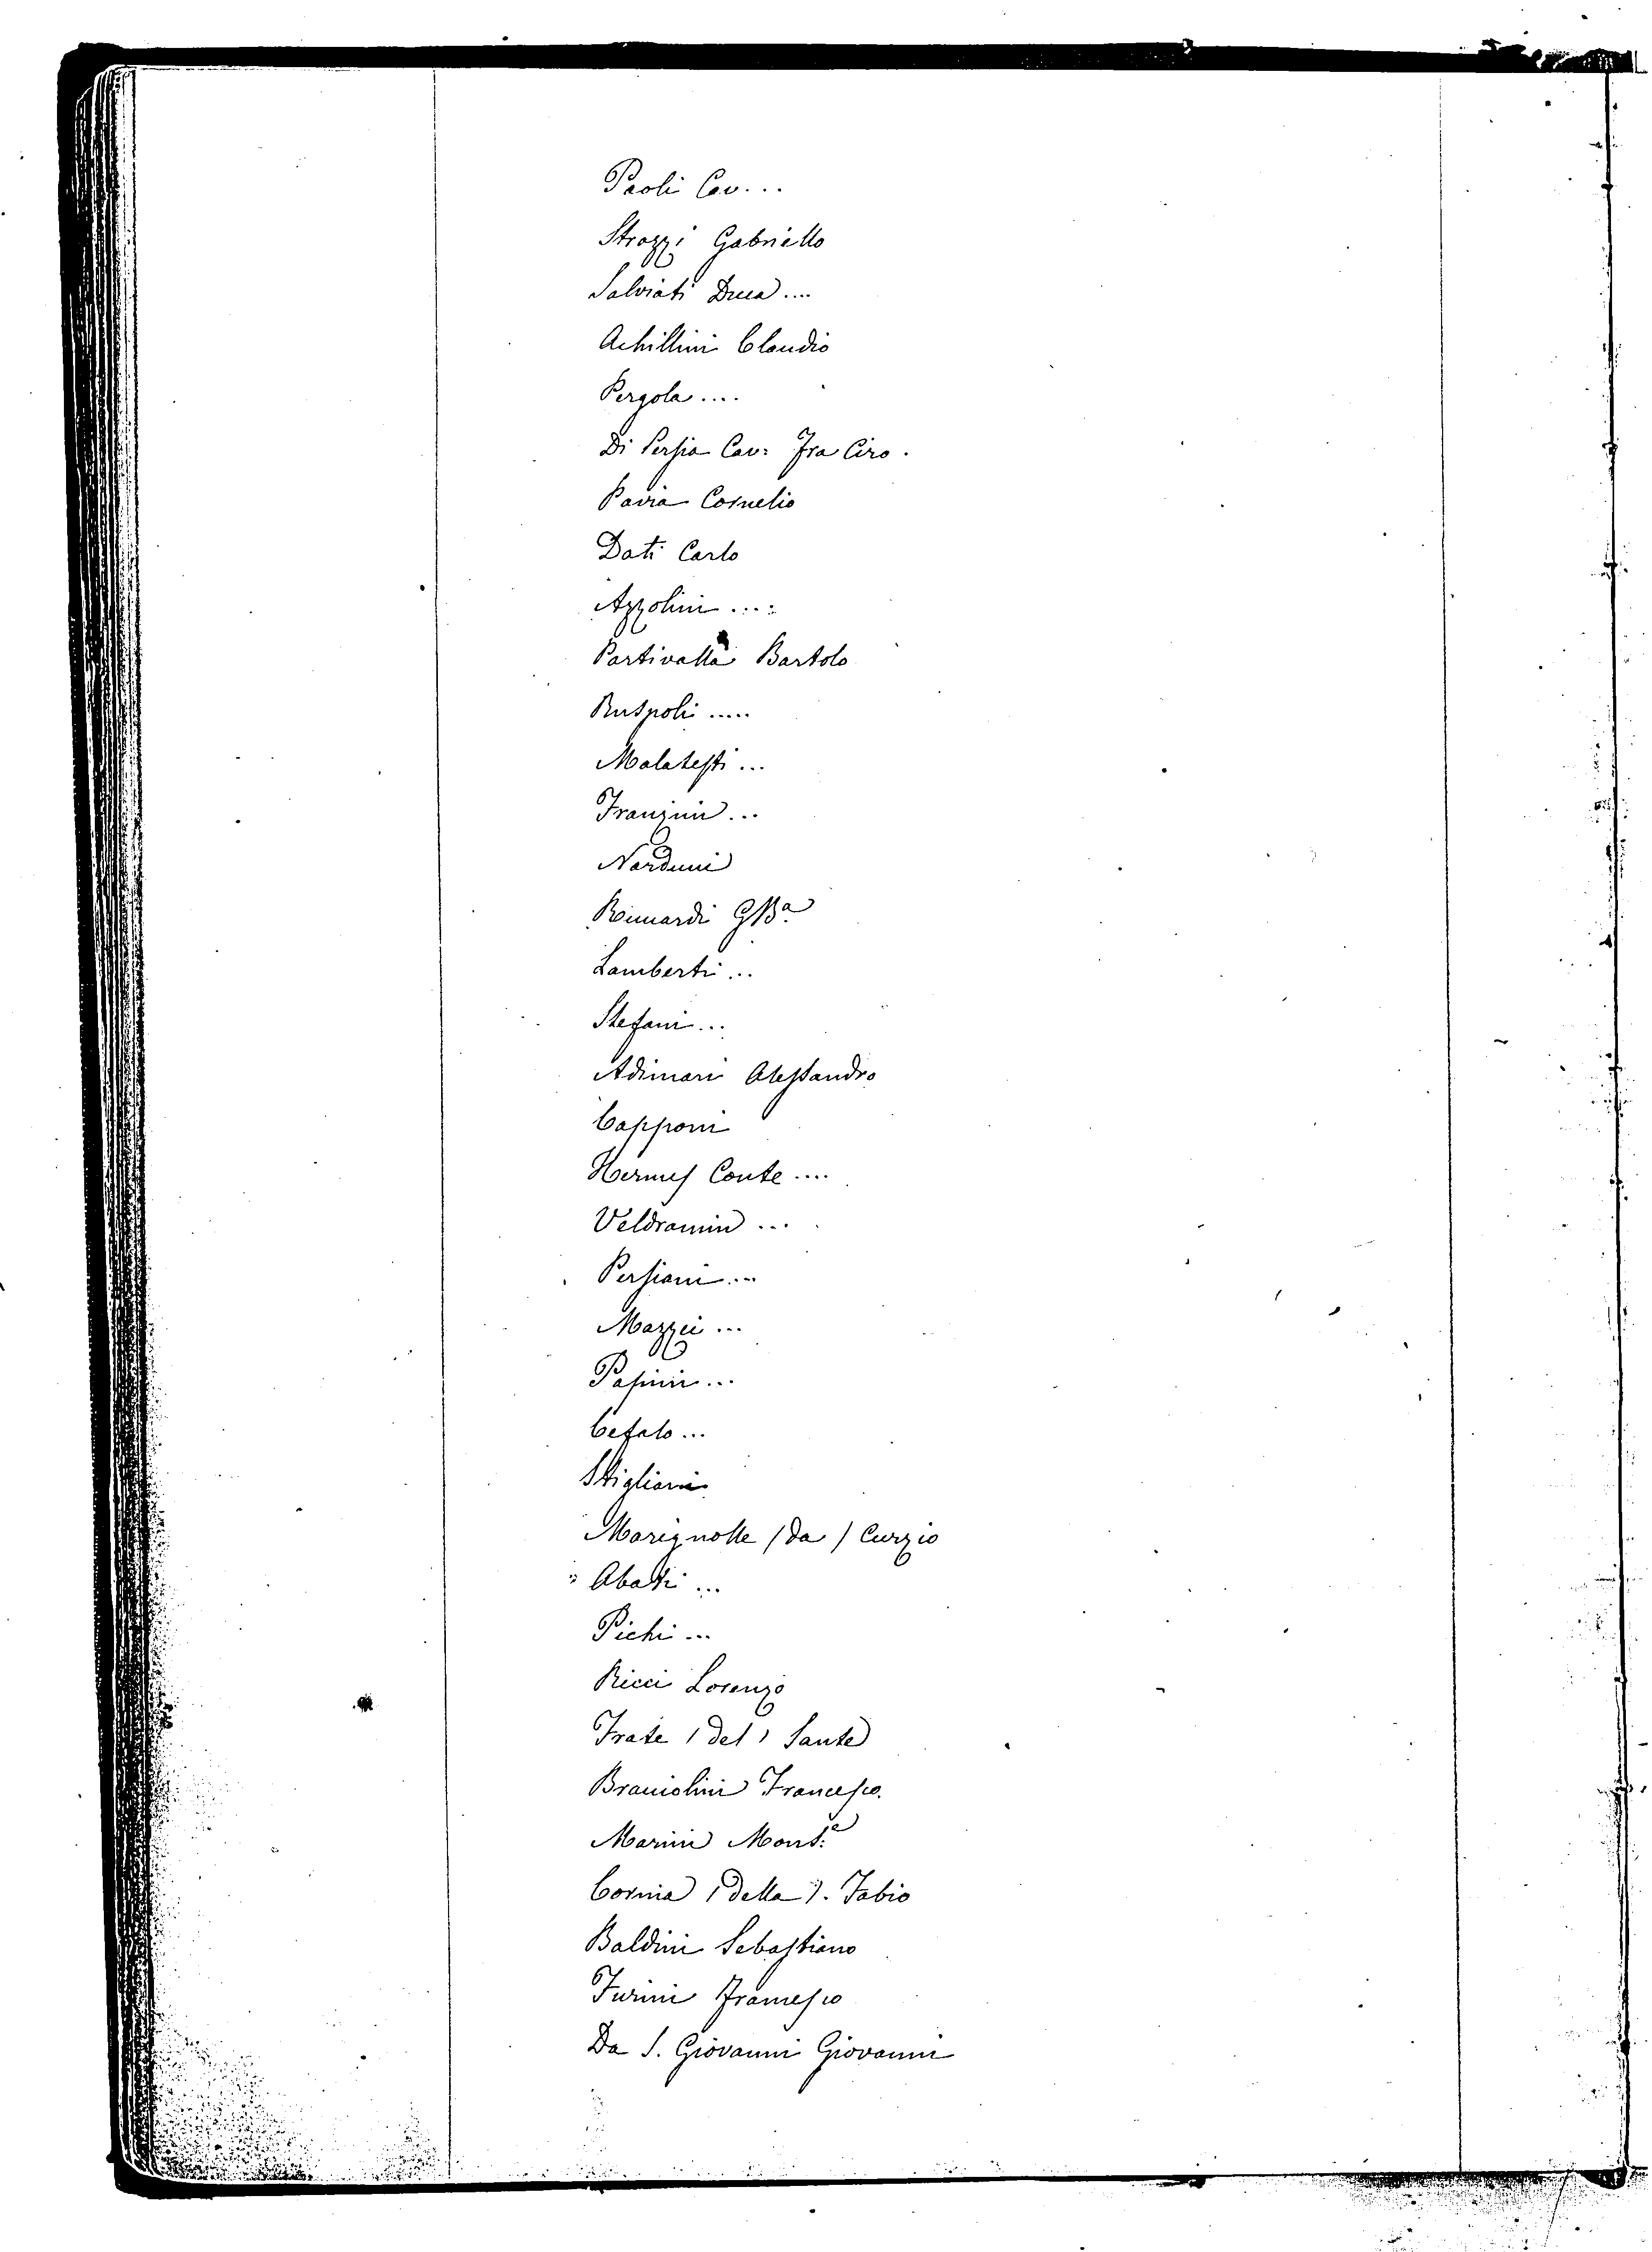 Paoli Cav...
Strozzi Gabriello
Salviati Duca....
Achillini Claudio
Pergola....
Di Persia Cav: Fra Ciro.
Pavia Cornelio
Dati Carlo
Azzolini....
Partivalla Bartolo
Ruspoli.....
Malatesti...
Franzini...
Narduni
Rinuardi GBa.
Lamberti...
Stefani...
Adimari Alessandro
Capponi
Hermes Conte....
Veldramin...
Persiani...
Mazzei...
Pasini...
Cefalo...
Stigliani
Marignolle (da) Curzio
Abati...
Pichi...
Ricci Lorenzo
Frate (del) Sante
Braciolini Francesco.
Marini Mons.e
Cornia (della). Fabio
Baldini Sebastiano
Furini Francesco
Da S. Giovanni Giovanni